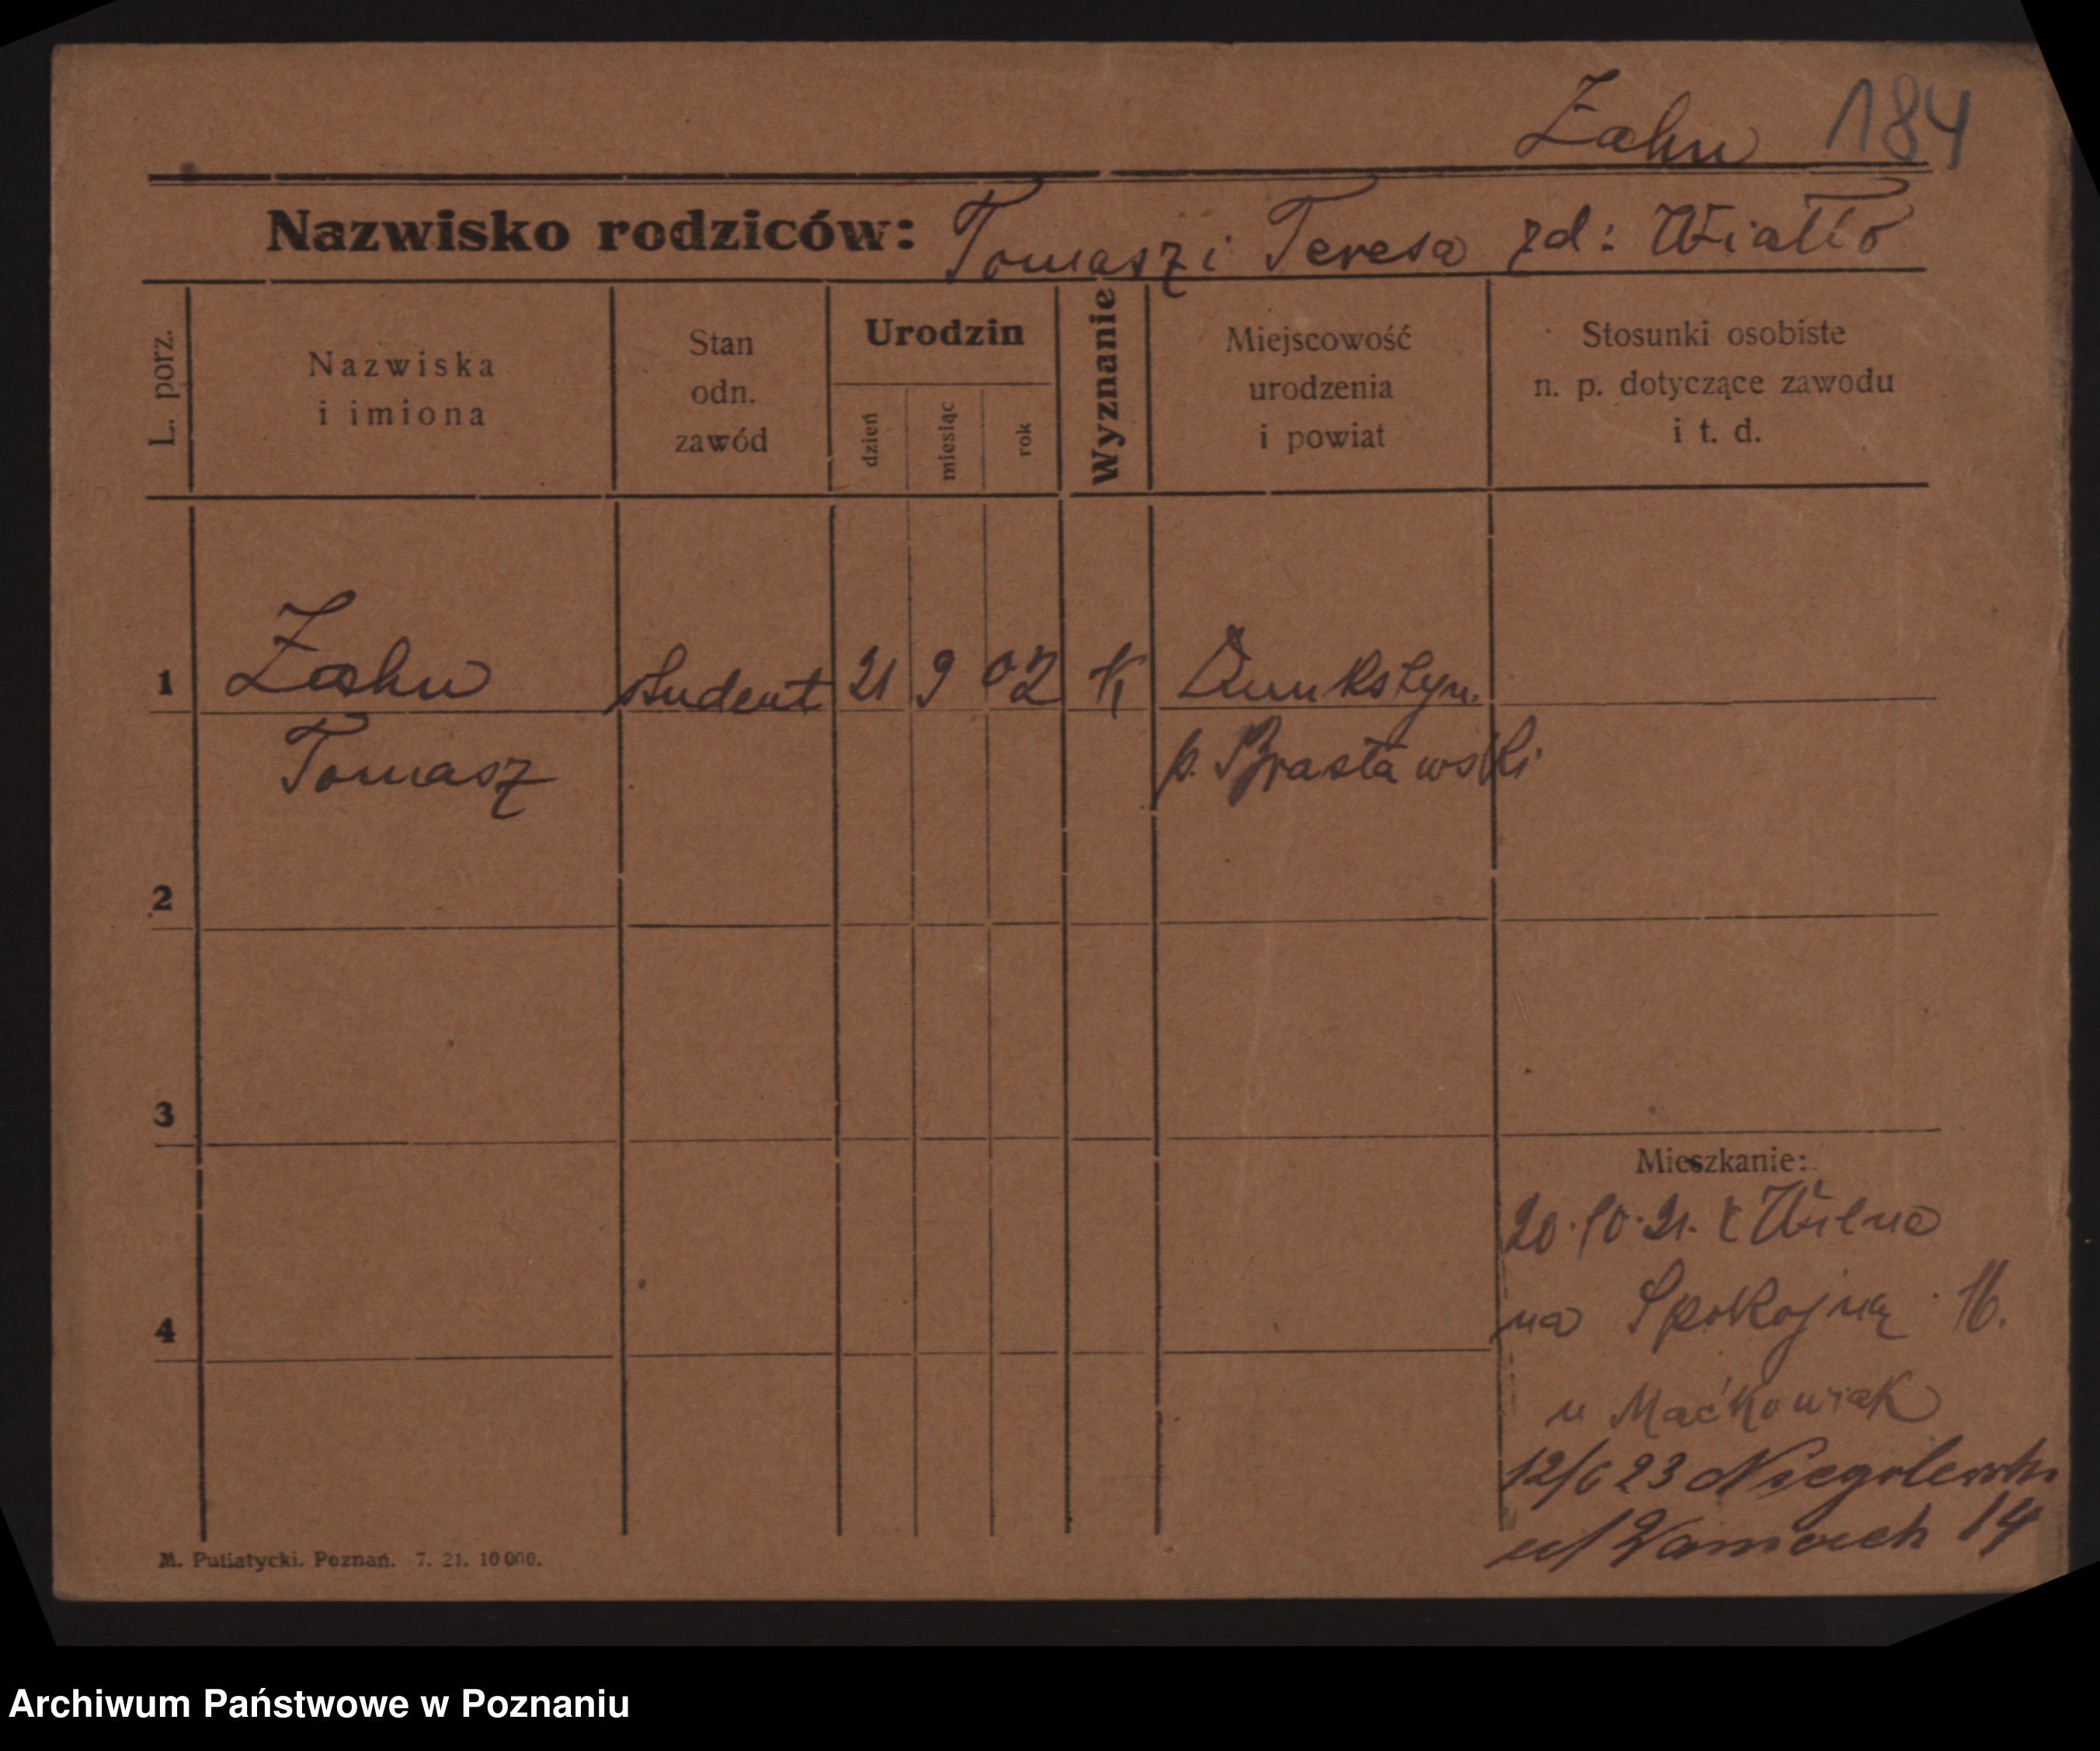 Zahn 184
Nazwisko rodziców: Tomasz i Teresa zd: Wiatło
L. porz.
Nazwiska
i imiona
Stan
odn.
zawód
Urodzin
dzień
miesiąc
rok
Wyznanie
Miejscowość
urodzenia
i powiat
Stosunki osobiste
n. p. dotyczące zawodu
i t. d.
1 Zahn student 21 9 02 K
Tomasz p. Brasławski
2
3
4
Mieszkanie:
20.10.21. z Wilna
na Spokojną 16.
u Maćkowiak
12/6 23 Niegolewsk.
14
M. Putiatycki. Poznań. 7. 21. 10000.
Archiwum Państwowe w Poznaniu